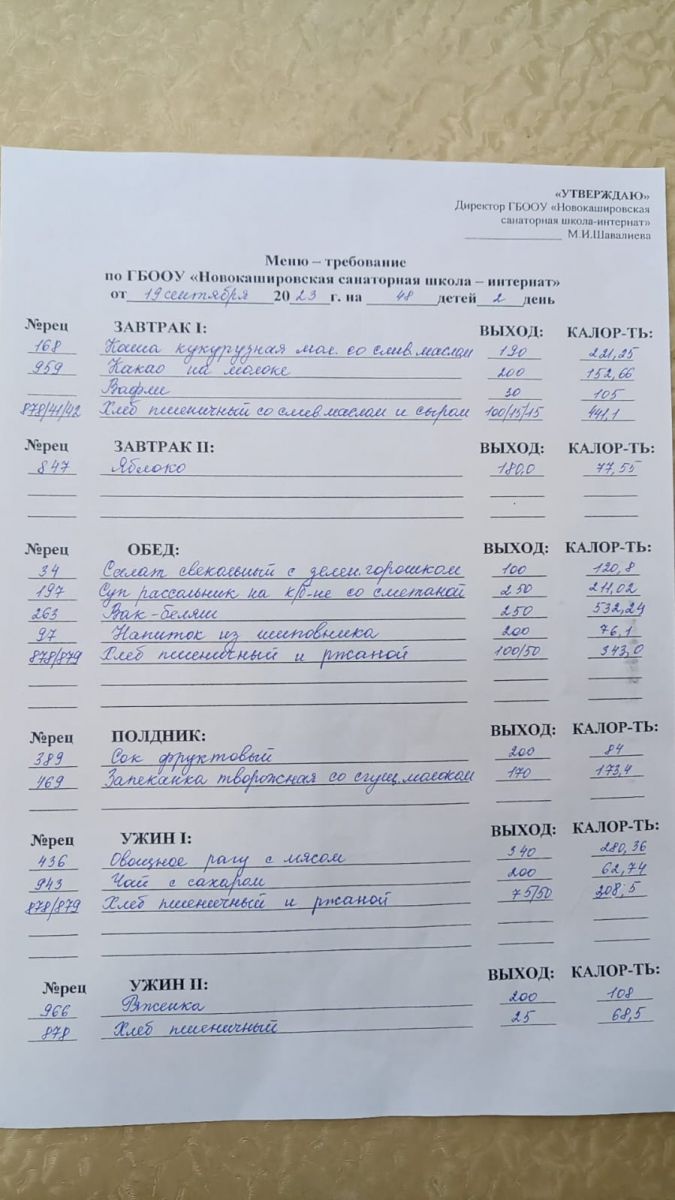 «УТВЕРЖДАЮ»
Директор ГБООУ «Новокашировская
санаторная школа-интернат»
______________ М.И.Шавалиева
Меню – требование
по ГБООУ «Новокашировская санаторная школа – интернат»
от 19 сентября 2023 г. на 48 детей 2 день
№рец ЗАВТРАК I: ВЫХОД: КАЛОР-ТЬ:
168 Каша кукурузная мол. со слив.маслом 190 221,25
959 Какао на молоке 200 152,66
Вафли 30 105
878/41/42 Хлеб пшеничный со слив маслом и сыром 100/15/15 441,1
№рец ЗАВТРАК II: ВЫХОД: КАЛОР-ТЬ:
847 Яблоко 180,0 77,55
№рец ОБЕД: ВЫХОД: КАЛОР-ТЬ:
34 Салат свекольный с зелен.горошком 100 120,8
197 Суп рассольник на к/б-не со сметаной 250 211,02
263 Вак-беляш 250 532,24
97 Напиток из шиповника 200 76,1
878/879 Хлеб пшеничный и ржаной 100/50 343,0
№рец ПОЛДНИК: ВЫХОД: КАЛОР-ТЬ:
389 Сок фруктовый 200 84
469 Запеканка творожная со сгущ.молоком 170 173,4
№рец УЖИН I: ВЫХОД: КАЛОР-ТЬ:
436 Овощное рагу с мясом 340 280,36
943 Чай с сахаром 200 62,74
878/879 Хлеб пшеничный и ржаной 75/50 308,5
№рец УЖИН II: ВЫХОД: КАЛОР-ТЬ:
966 Ряженка 200 108
878 Хлеб пшеничный 25 68,5